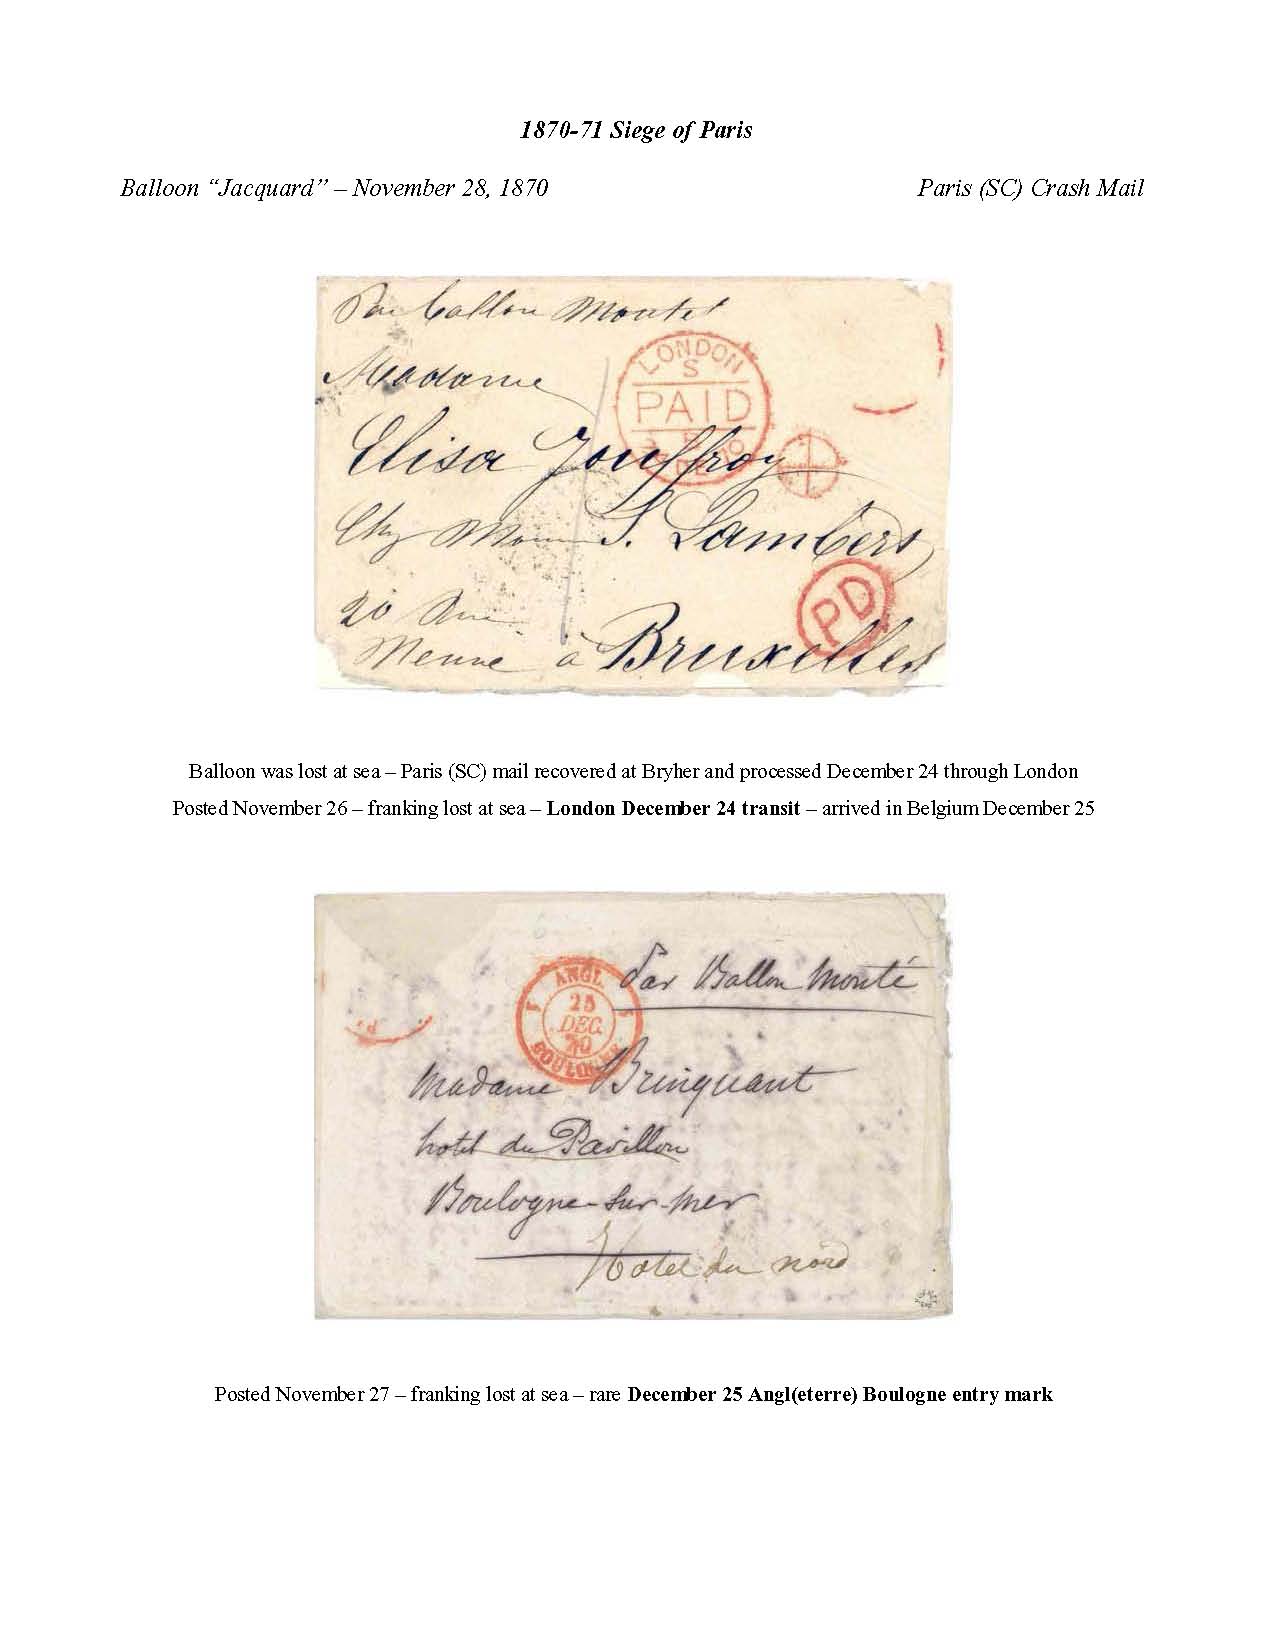 1870-71 Siege of Paris
Balloon “Jacquard” – November 28, 1870 Paris (SC) Crash Mail
Par ballon Montet
Madame
LONDON
S
PAID
Elisa Jouffroy
Chz S. Lambert
PD
20 Rue
Meune à Bruxelles
Balloon was lost at sea – Paris (SC) mail recovered at Bryher and processed December 24 through London
Posted November 26 – franking lost at sea – London December 24 transit – arrived in Belgium December 25
Par Ballon Monté
ANGL.
25
DEC.
70
BOULOGNE
Madame Brinquant
hotel du Pavillon
Boulogne-sur-mer
Hotel du nord
Posted November 27 – franking lost at sea – rare December 25 Angl(eterre) Boulogne entry mark